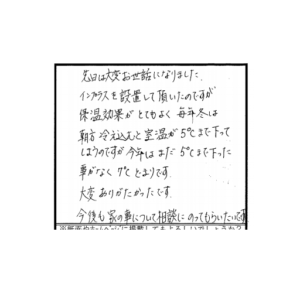 先日は大変お世話になりました。
インプラスを設置して頂いたのですが
保温効果がとてもよく 毎年冬は
朝方 冷え込むと室温が5℃まで下って
しまうのですが今年はまだ 5℃まで下った
事がなく 7℃どまりです。
大変ありがたかったです。
今後も家の事について相談にのってもらいたいです